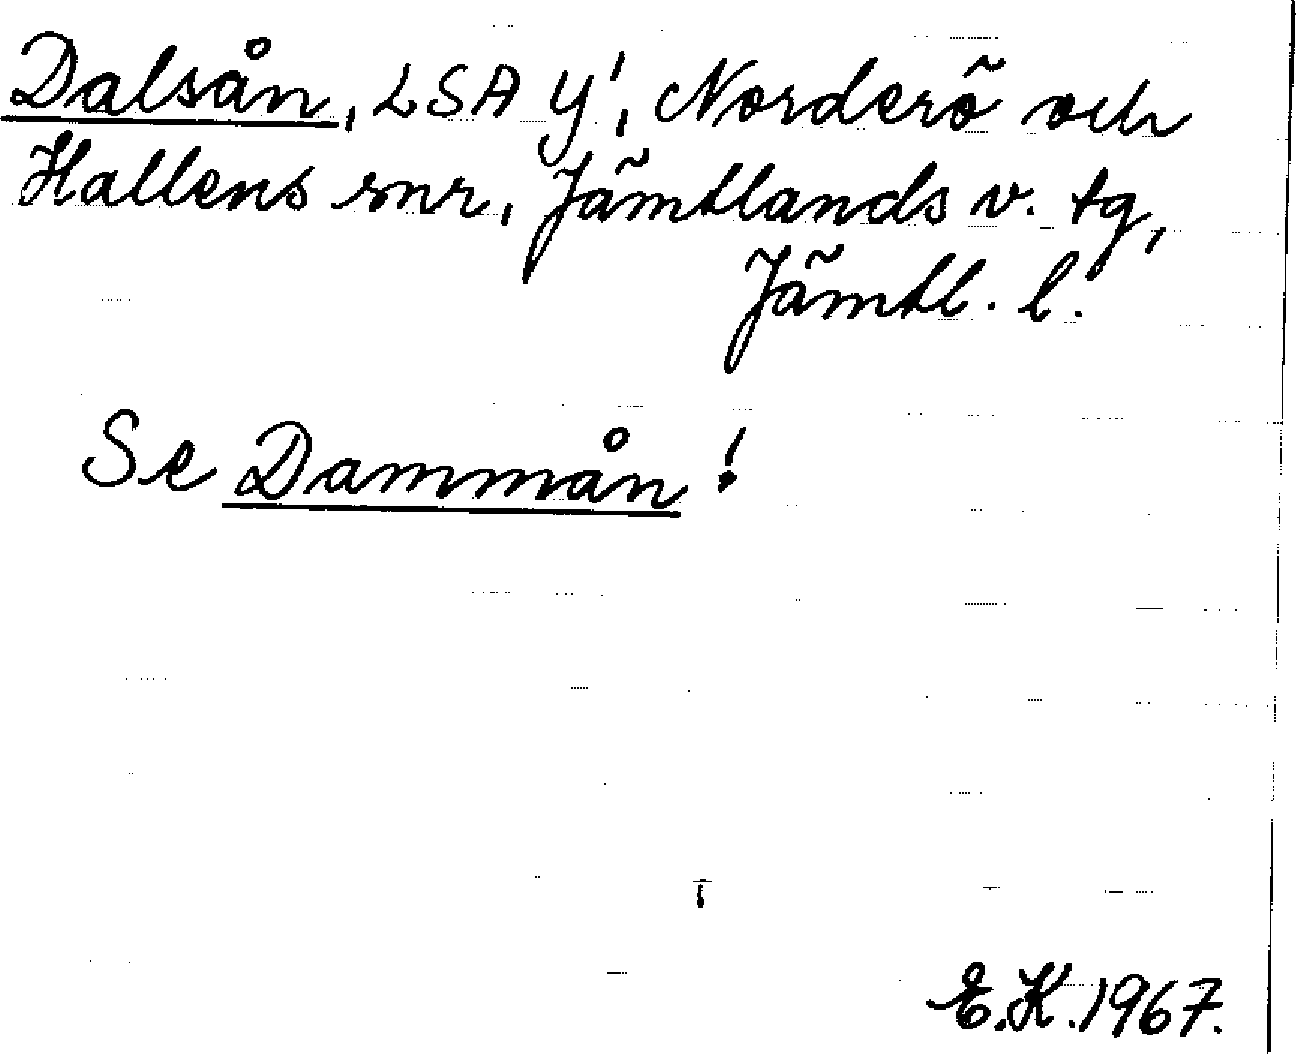 Dalsån, LSA Y', Norderö och
Hallens snr, Jämtlands v. tg,
Jämtl. l.
Se Dammån!
E.K. 1967.